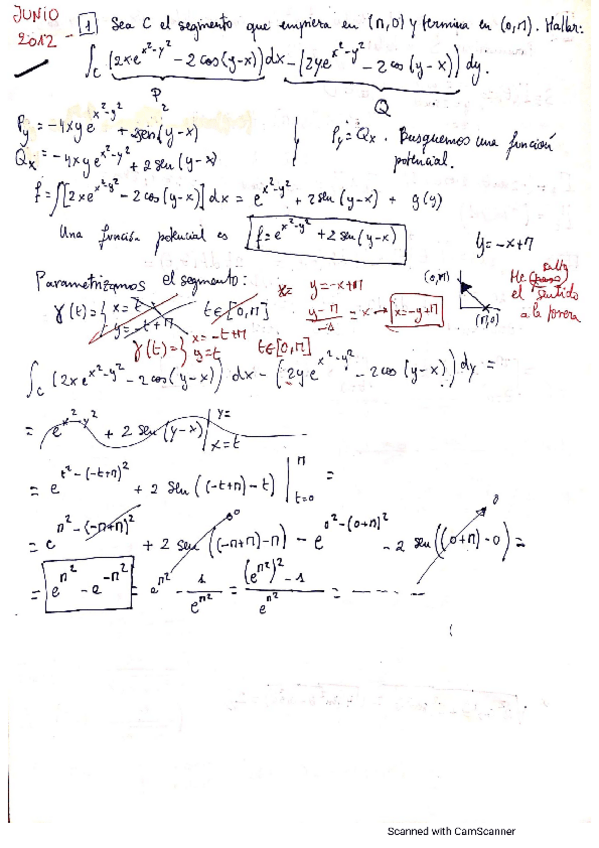 JUNIO
2012 - 1 Sea C el segmento que empieza en (π,0) y termina en (0,π). Hallar:
∫_C (2xe^{x²-y²} - 2cos(y-x))dx - (2ye^{x²-y²} - 2cos(y-x))dy.
P
Q
P_y = -4xye^{x²-y²} + 2sen(y-x)
Q_x = -4xye^{x²-y²} + 2sen(y-x)
P_y = Q_x. Busquemos una función
potencial.
f = ∫[2xe^{x²-y²} - 2cos(y-x)]dx = e^{x²-y²} + 2sen(y-x) + g(y)
Una función potencial es f = e^{x²-y²} + 2sen(y-x)
y = -x+π
Parametrizamos el segmento:
γ(t) = { x = t, y = -t+π t∈[0,π]
γ(t) = { x = -t+π y = t t∈[0,π]
y = -x+π
(y-π)/-1 = x → x = -y+π
(0,π)
(π,0)
He
el sentido
a la
∫_C (2xe^{x²-y²} - 2cos(y-x))dx - (2ye^{x²-y²} - 2cos(y-x))dy =
= e^{x²-y²} + 2sen(y-x) | y= x=t
= e^{t²-(-t+π)²} + 2sen((-t+π)-t) |_{t=0}^{π} =
= e^{π²-(-π+π)²} + 2sen((-π+π)-π) - e^{0²-(0+π)²} - 2sen((0+π)-0) =
0
0
= e^{π²} - e^{-π²} = e^{π²} - 1/e^{π²} = ((e^{π²})² - 1)/e^{π²} = - - - - -
Scanned with CamScanner